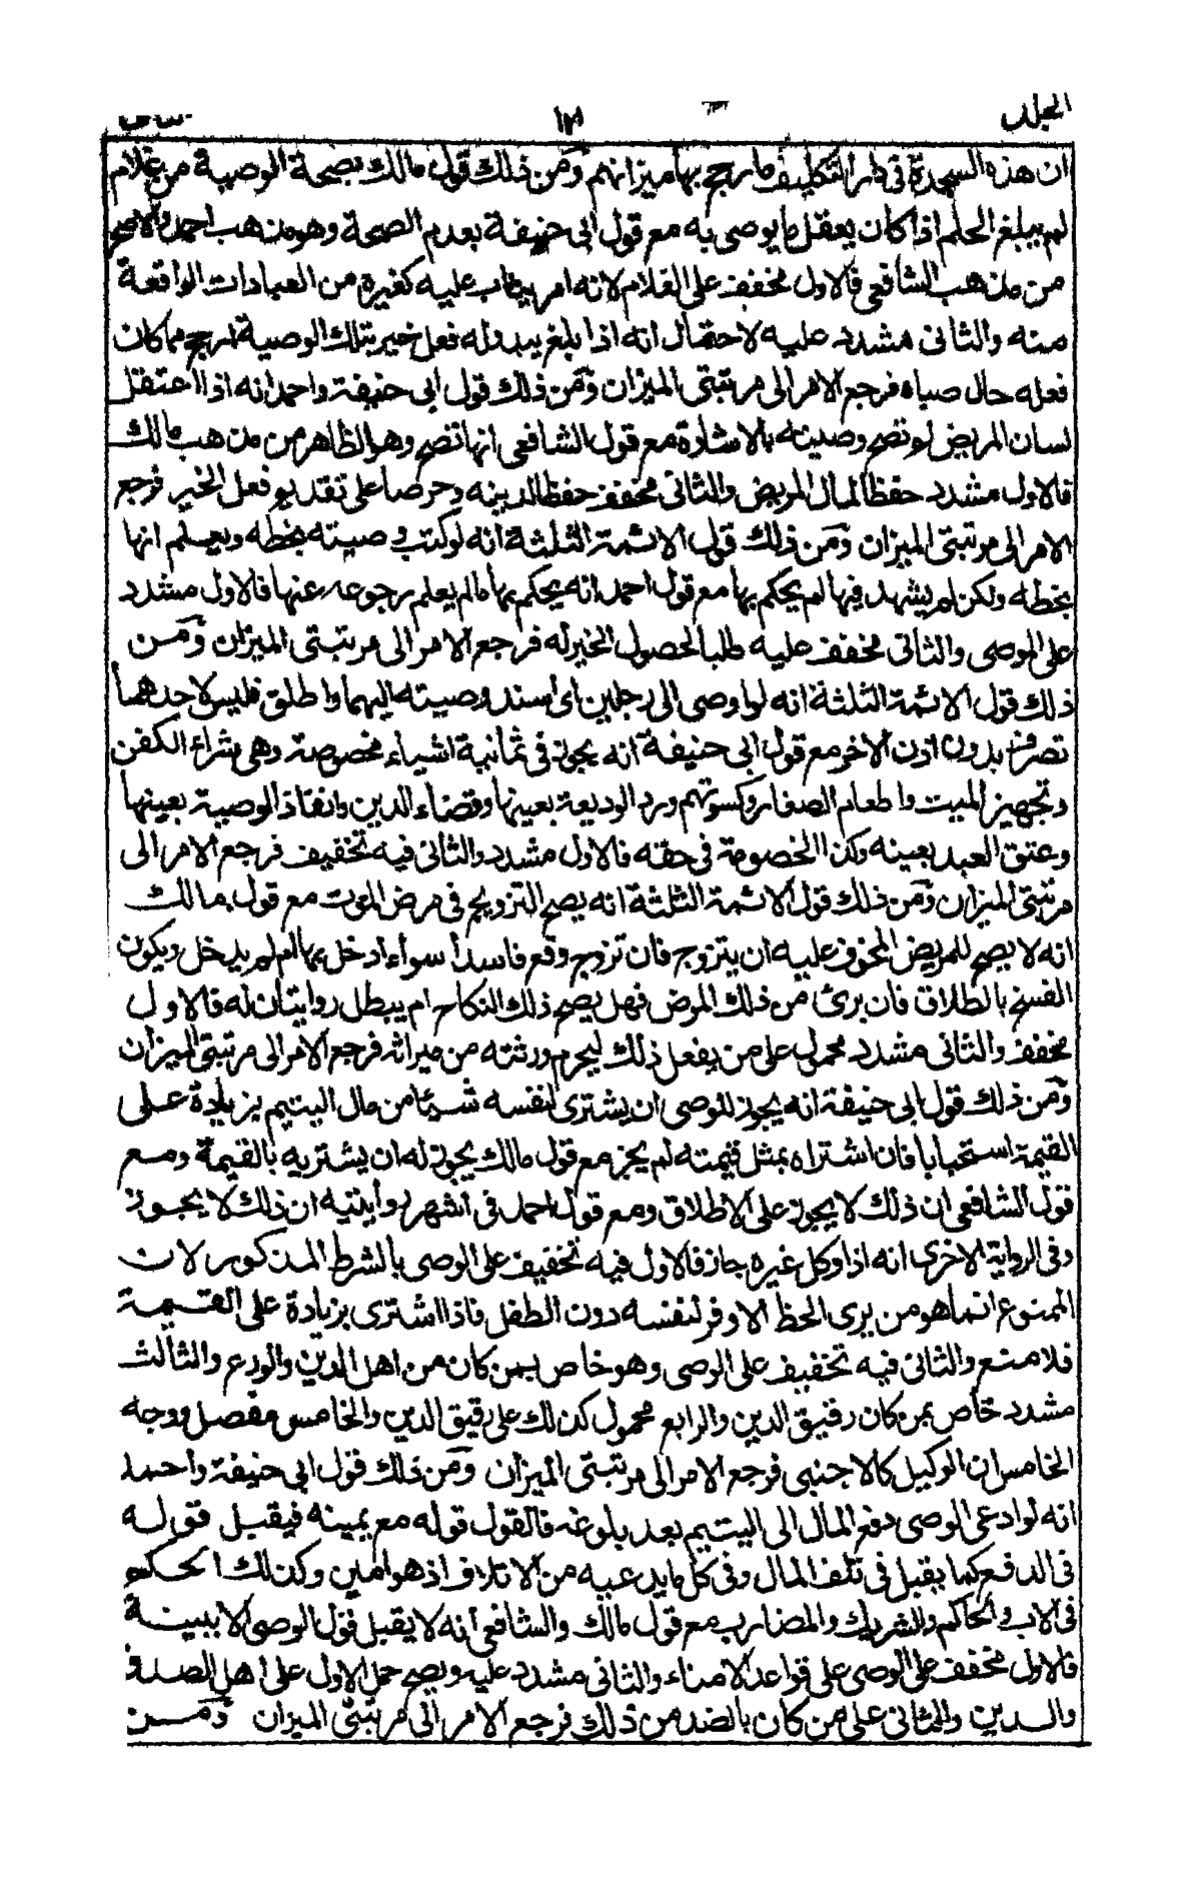 المجلد ١٣
ان هذه السجدة فى دار التكليف ما رجح بها ميزانهم ومن ذلك قول مالك بصحة الوصية من غلام
لم يبلغ الحلم اذا كان يعقل ما يوصى به مع قول ابى حنيفة بعدم الصحة وهو مذهب احمد والاصح
من مذهب الشافعى فالاول مخفف على الغلام لانه امر يثاب عليه كغيره من العبادات الواقعة
منه والثانى مشدد عليه لاحتمال انه اذا بلغ يبدو له فعل خير بتلك الوصية ارجح مما كان
فعله حال صباه فرجع الامر الى مرتبتى الميزان ومن ذلك قول ابى حنيفة واحمد انه اذا اعتقل
لسان المريض لم تصح وصيته بالاشارة مع قول الشافعى انها تصح وهو الظاهر من مذهب مالك
فالاول مشدد حفظا لمال المريض والثانى مخفف حفظا لدينه وحرصا على تقديم فعل الخير فرجع
الامر الى مرتبتى الميزان ومن ذلك قول الائمة الثلثة انه لو كتب وصيته بخطه ويعلم انها
بخطه ولكن لم يشهد فيها لم يحكم بها مع قول احمد انه يحكم بها ما لم يعلم رجوعه عنها فالاول مشدد
على الموصى والثانى مخفف عليه طلبا لحصول الخير له فرجع الامر الى مرتبتى الميزان ومن
ذلك قول الائمة الثلثة انه لو اوصى الى رجلين اى اسند وصيته اليهما واطلق فليس لاحدهما
تصرف بدون اذن الاخر مع قول ابى حنيفة انه يجوز فى ثمانية اشياء مخصوصة وهى شراء الكفن
وتجهيز الميت واطعام الصغار وكسوتهم ورد الوديعة بعينها وقضاء الدين وانفاذ الوصية بعينها
وعتق العبد بعينه وكذا الخصومة فى حقه فالاول مشدد والثانى فيه تخفيف فرجع الامر الى
مرتبتى الميزان ومن ذلك قول الائمة الثلثة انه يصح التزويج فى مرض الموت مع قول مالك
انه لا يصح للمريض المخوف عليه ان يتزوج فان تزوج وقع فاسدا سواء ادخل بها ام لم يدخل ويكون
الفسخ بالطلاق فان برئ من ذلك المرض فهل يصح ذلك النكاح ام يبطل روايتان له فالاول
مخفف والثانى مشدد محمول على من يفعل ذلك ليحرم ورثته من ميراثه فرجع الامر الى مرتبتى الميزان
ومن ذلك قول ابى حنيفة انه يجوز للوصى ان يشترى لنفسه شيئا من مال اليتيم بزيادة على
القيمة استحبابا فان اشتراه بمثل قيمته لم يجز مع قول مالك يجوز له ان يشتريه بالقيمة ومع
قول الشافعى ان ذلك لا يجوز على الاطلاق ومع قول احمد فى اشهر روايتيه ان ذلك لا يجوز
وفى الرواية الاخرى انه اذا وكل غيره جاز فالاول فيه تخفيف على الوصى بالشرط المذكور لان
الممنوع انما هو من يرى الحظ الاوفر لنفسه دون الطفل فاذا اشترى بزيادة على القيمة
فلا منع والثانى فيه تخفيف على الوصى وهو خاص بمن كان من اهل الدين والورع والثالث
مشدد خاص بمن كان رقيق الدين والرابع محمول كذلك على رقيق الدين والخامس مفصل ووجه
الخامس ان الوكيل كالاجنبى فرجع الامر الى مرتبتى الميزان ومن ذلك قول ابى حنيفة واحمد
انه لو ادعى الوصى دفع المال الى اليتيم بعد بلوغه فالقول قوله مع يمينه فيقبل قوله
فى الدفع كما يقبل فى تلف المال وفى كل ما يدعيه من الاتلاف اذ هو امين وكذلك الحكم
فى الاب والحاكم والشريك والمضارب مع قول مالك والشافعى انه لا يقبل قول الوصى الا ببينة
فالاول مخفف على الوصى على قواعد الامناء والثانى مشدد عليه ويصح حمل الاول على اهل الصدق
والدين والثانى على من كان بالضد من ذلك فرجع الامر الى مرتبتى الميزان ومن